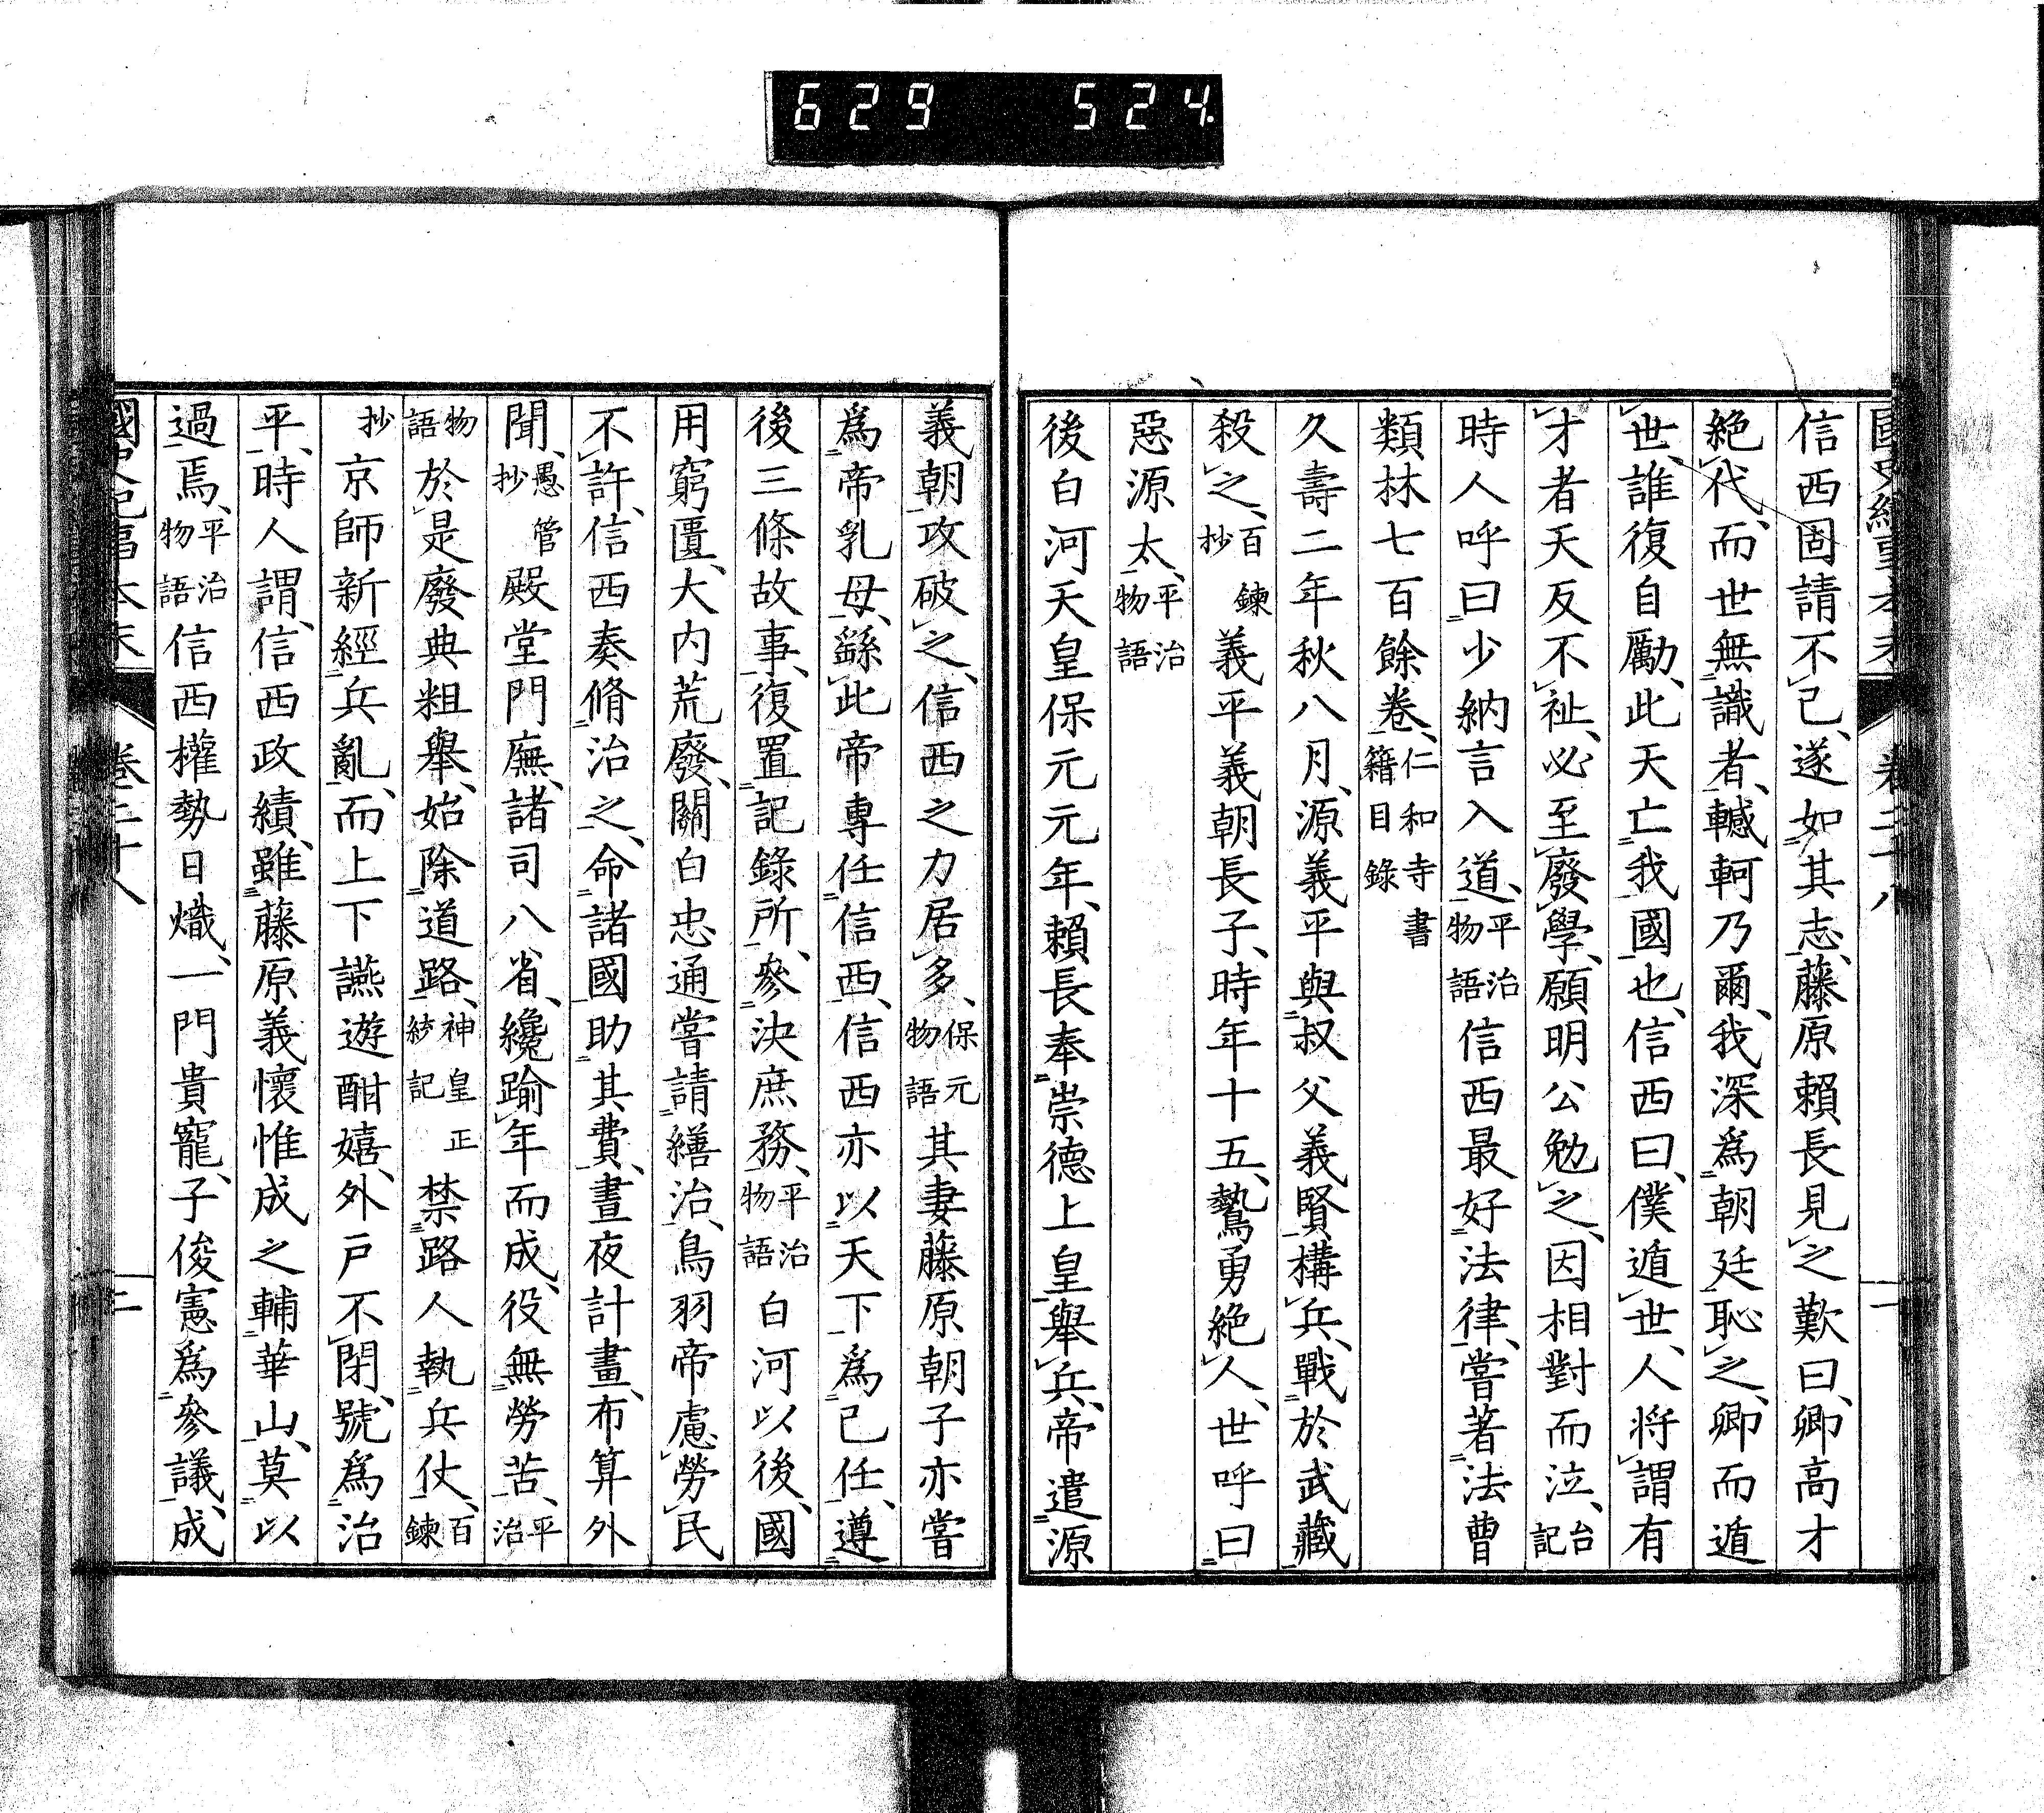 629 524.
信西固請不已、遂如其志、藤原賴長見之歎曰、卿高才
絶代、而世無識者、轗軻乃爾、我深爲朝廷恥之、卿而遁
世、誰復自勵、此天亡我國也、信西曰、僕遁世、人將謂有
才者天反不祉、必至廢學、願明公勉之、因相對而泣、台記
時人呼曰少納言入道、平治物語信西最好法律、嘗著法曹
類林七百餘卷、仁和寺書籍目錄
久壽二年秋八月、源義平與叔父義賢構兵、戰於武藏
殺之、百鍊抄義平義朝長子、時年十五、鷙勇絶人、世呼曰
惡源太、平治物語
後白河天皇保元元年、賴長奉崇德上皇舉兵、帝遣源
義朝攻破之、信西之力居多、保元物語其妻藤原朝子亦嘗
爲帝乳母、繇此帝專任信西、信西亦以天下爲己任、遵
後三條故事、復置記錄所、參決庶務、平治物語白河以後、國
用窮匱、大內荒廢、關白忠通嘗請繕治、鳥羽帝慮勞民
不許、信西奏脩治之、命諸國助其費、晝夜計畫、布算外
聞、愚管抄殿堂門廡、諸司八省、纔踰年而成、役無勞苦、平治
物語於是廢典粗舉、始除道路、神皇正紗記禁路人執兵仗、百鍊
抄京師新經兵亂、而上下讌遊酣嬉、外戶不閉、號爲治
平、時人謂、信西政績、雖藤原義懷惟成之輔華山、莫以
過焉、平治物語信西權勢日熾、一門貴寵、子俊憲爲參議、成
卷二十八
二